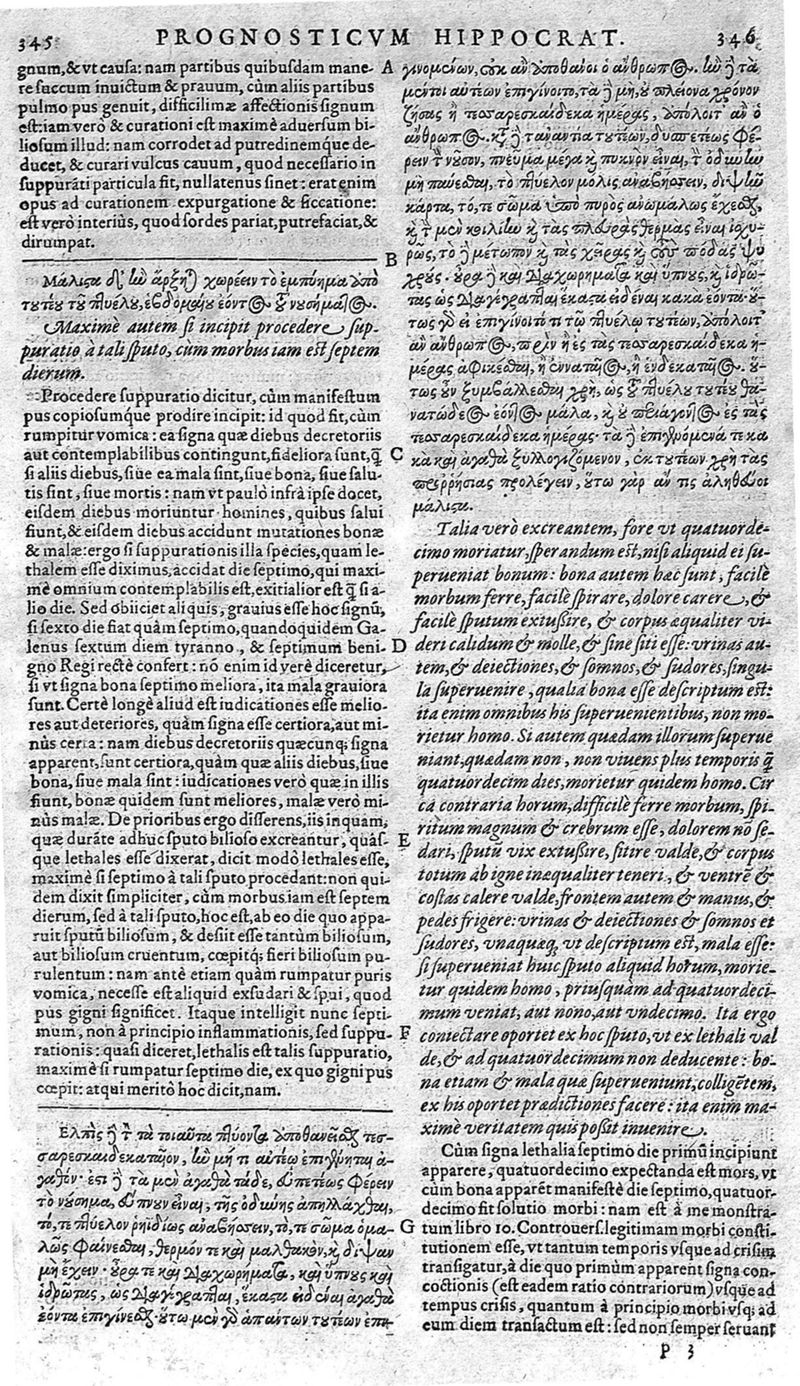 345 PROGNOSTICVM HIPPOCRAT. 346
gnum,& vt causa: nam partibus quibusdam mane-
re succum inuictum & prauum, cùm aliis partibus
pulmo pus genuit, difficilimæ affectionis signum
est: iam verò & curationi est maximè aduersum bi-
liosum illud: nam corrodet ad putredinemque de-
ducet, & curari vulcus cauum, quod necessario in
suppurati particula fit, nullatenus sinet: erat enim
opus ad curationem expurgatione & siccatione:
est verò interius, quod sordes pariat, putrefaciat, &
dirumpat.
Μάλιστα δ', ἢν ἄρξηται χωρέειν τὸ ἐμπύημα ἀπὸ
τουτέου τοῦ πτυέλου, ἑβδομαίου ἐόντος τοῦ νουσήματος.
Maximè autem si incipit procedere sup-
puratio à tali sputo, cùm morbus iam est septem
dierum.
Procedere suppuratio dicitur, cùm manifestum
pus copiosumque prodire incipit: id quod fit, cùm
rumpitur vomica: ea signa quæ diebus decretoriis
aut contemplabilibus contingunt, fideliora sunt, q̃
si aliis diebus, siue ea mala sint, siue bona, siue salu-
tis sint, siue mortis: nam vt paulò infrà ipse docet,
eisdem diebus moriuntur homines, quibus salui
fiunt, & eisdem diebus accidunt mutationes bonæ
& malæ: ergo si suppurationis illa species, quam le-
thalem esse diximus, accidat die septimo, qui maxi-
mè omnium contemplabilis est, exitialior est q̃ si a-
lio die. Sed obiiciet aliquis, grauius esse hoc signũ,
si sexto die fiat quàm septimo, quandoquidem Ga-
lenus sextum diem tyranno, & septimum beni-
gno Regi rectè confert: nõ enim id verè diceretur,
si vt signa bona septimo meliora, ita mala grauiora
sunt. Certè longè aliud est iudicationes esse melio-
res aut deteriores, quàm signa esse certiora, aut mi-
nùs certa: nam diebus decretoriis quæcunq; signa
apparent, sunt certiora, quàm quæ aliis diebus, siue
bona, siue mala sint: iudicationes verò quæ in illis
fiunt, bonæ quidem sunt meliores, malæ verò mi-
nùs malæ. De prioribus ergo disserens, iis inquam,
quæ durãte adhuc sputo bilioso excreantur, quás-
que lethales esse dixerat, dicit modò lethales esse,
maximè si septimo à tali sputo procedant: non qui-
dem dixit simpliciter, cùm morbus iam est septem
dierum, sed à tali sputo, hoc est, ab eo die quo appa-
ruit sputũ biliosum, & desiit esse tantùm biliosum,
aut biliosum cruentum, cœpitq; fieri biliosum pu-
rulentum: nam antè etiam quàm rumpatur puris
vomica, necesse est aliquid exsudari & spui, quod
pus gigni significet. Itaque intelligit nunc septi-
mum, non à principio inflammationis, sed suppu-
rationis: quasi diceret, lethalis est talis suppuratio,
maximè si rumpatur septimo die, ex quo gigni pus
cœpit: atqui meritò hoc dicit, nam.
Ἐλπὶς δὲ τὸν τὰ τοιαῦτα πτύοντα ἀποθανέεσθαι τεσ-
σαρεσκαιδέκατον, ἢν μή τι αὐτέῳ ἐπιγένηται ἀ-
γαθόν· ἔστι δὲ τὰ μὲν ἀγαθὰ τάδε, εὐπετέως φέρειν
τὸ νόσημα, εὔπνουν εἶναι, τῆς ὀδύνης ἀπηλλάχθαι,
τό, τε πτύελον ῥηϊδίως ἀναβήσσειν, τό, τε σῶμα ὁμα-
λῶς φαίνεσθαι, θερμόν τε καὶ μαλθακὸν, καὶ δίψαν
μὴ ἔχειν· οὖρά τε καὶ διαχωρήματα, καὶ ὕπνους καὶ
ἱδρῶτας, ὡς διαγέγραπται, ἕκαστα εἰδέναι ἀγαθὰ
ἐόντα ἐπιγίνεσθαι· οὕτω μὲν γὰρ ἁπάντων τουτέων ἐπι-
A
B
C
D
E
F
G
γινομένων, οὐκ ἂν ἀποθάνοι ὁ ἄνθρωπος. ἢν δὲ τὰ
μέν τοι αὐτέων ἐπιγίνοιτο, τὰ δὲ μὴ, οὐ πλείονα χρόνον
ζήσας ἢ τεσσαρεσκαίδεκα ἡμέρας, ἀπόλοιτ' ἂν ὁ
ἄνθρωπος. κατὰ δὲ τἀναντία τουτέων, δυσπετέως φέ-
ρειν τὴν νοῦσον, πνεῦμα μέγα καὶ πυκνὸν εἶναι, τὴν ὀδύνην
μὴ παύεσθαι, τὸ πτύελον μόλις ἀναβήσσειν, διψῆν
κάρτα, τό, τε σῶμα ὑπὸ πυρὸς ἀνωμάλως ἔχεσθαι,
καὶ τὴν μὲν κοιλίην καὶ τὰς πλευρὰς θερμὰς εἶναι ἰσχυ-
ρῶς, τὸ δὲ μέτωπον καὶ τὰς χεῖρας καὶ τοὺς πόδας ψυ-
χρούς· οὖρα δὲ καὶ διαχωρήματα καὶ ὕπνους, καὶ ἱδρῶ-
τας ὡς διαγέγραπται ἕκαστα εἰδέναι κακὰ ἐόντα· οὕ-
τως γὰρ εἰ ἐπιγίνοιτό τι τῷ πτυέλῳ τουτέων, ἀπόλοιτ'
ἂν ἄνθρωπος, πρὶν ἢ ἐς τὰς τεσσαρεσκαίδεκα ἡ-
μέρας ἀφικέσθαι, ἢ ἐννα­ταῖος, ἢ ἑνδεκαταῖος. οὕ-
τως οὖν ξυμβάλλεσθαι χρὴ, ὡς τοῦ πτυέλου τουτέου θα-
νατώδεος ἐόντος μάλα, καὶ οὐ περιάγοντος ἐς τὰς
τεσσαρεσκαίδεκα ἡμέρας· τὰ δὲ ἐπιγινόμενά τε κα-
κὰ καὶ ἀγαθὰ ξυλλογιζόμενον, ἐκ τουτέων χρὴ τὰς
προῤῥήσιας προλέγειν, οὕτω γὰρ ἄν τις ἀληθεύοι
μάλιστα.
Talia verò excreantem, fore vt quatuorde-
cimo moriatur, sperandum est, nisi aliquid ei su-
perueniat bonum: bona autem hæc sunt, facilè
morbum ferre, facilè spirare, dolore carere, &
facilè sputum extussire, & corpus æqualiter vi-
deri calidum & molle, & sine siti esse: vrinas au-
tem, & deiectiones, & somnos, & sudores, singu-
la superuenire, qualia bona esse descriptum est:
ita enim omnibus his superuenientibus, non mo-
rietur homo. Si autem quædam illorum superue
niant, quædam non, non viuens plus temporis q̃
quatuordecim dies, morietur quidem homo. Cir
cà contraria horum, difficilè ferre morbum, spi-
ritum magnum & crebrum esse, dolorem nõ se-
dari, sputũ vix extussire, sitire valde, & corpus
totum ab igne inæqualiter teneri, & ventrẽ &
costas calere valde, frontem autem & manus, &
pedes frigere: vrinas & deiectiones & somnos et
sudores, vnaquæq, vt descriptum est, mala esse:
si superueniat huic sputo aliquid horum, morie-
tur quidem homo, priusquàm ad quatuordeci-
mum veniat, aut nono, aut vndecimo. Ita ergo
coniectare oportet ex hoc sputo, vt ex lethali val
de, & ad quatuordecimum non deducente: bo-
na etiam & mala quæ superueniunt, colligẽtem,
ex his oportet prædictiones facere: ita enim ma-
ximè veritatem quis possit inuenire.
Cùm signa lethalia septimo die primũ incipiunt
apparere, quatuordecimo expectanda est mors, vt
cùm bona apparẽt manifestè die septimo, quatuor-
decimo fit solutio morbi: nam est à me monstra-
tum libro 10. Controuers. legitimam morbi consti-
tutionem esse, vt tantum temporis vsque ad crisim
transigatur, à die quo primùm apparent signa con-
coctionis (est eadem ratio contrariorum) vsque ad
tempus crisis, quantum à principio morbi vsq; ad
eum diem transactum est: sed non semper seruant
P 3